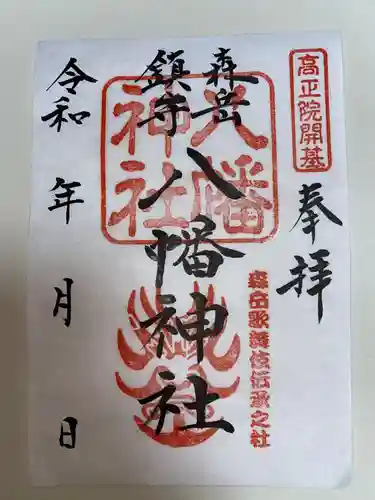 高正院開基
奉拝
森岳歌舞伎伝承之社
森岳
鎮守
八幡神社
八幡
神社
令和 年 月 日